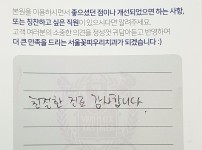 본원을 이용하시면서 좋으셨던 점이나 개선되었으면 하는 사항,
또는 칭찬하고 싶은 직원이 있으시다면 알려주세요.
고객 여러분의 소중한 의견을 정성껏 귀담아듣고 반영하여
더 큰 만족을 드리는 서울꽃피우리치과가 되겠습니다 :)
친절한 진료 감사합니다.